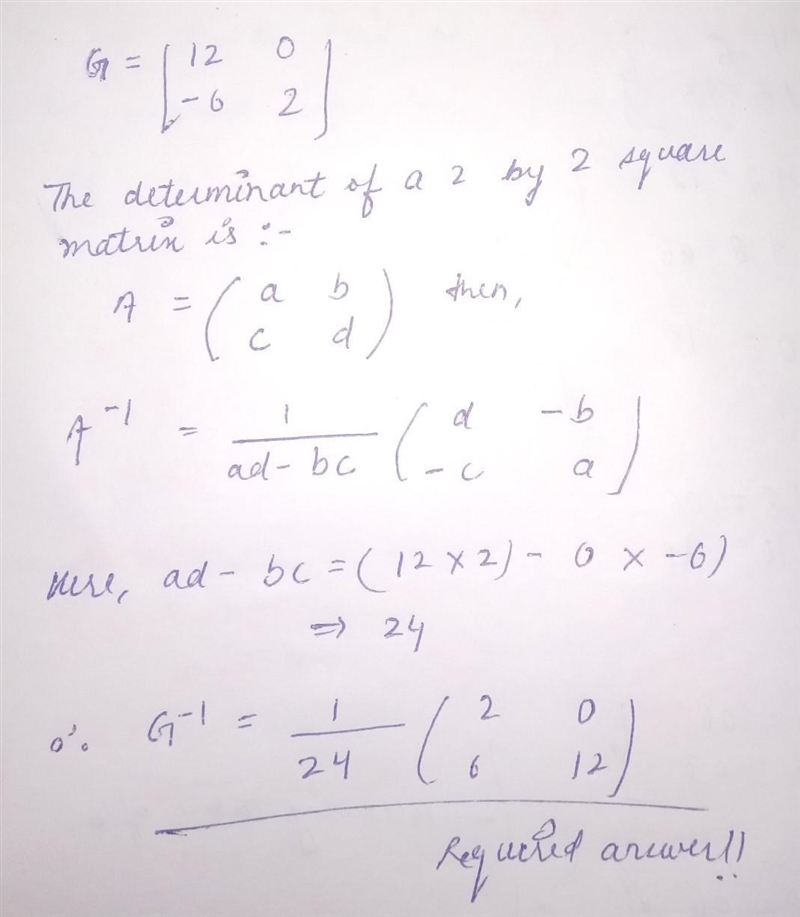 G = [ 12 0
-6 2 ]
The determinant of a 2 by 2 square
matrix is :-
A = ( a b
c d ) then,
A⁻¹ = 1/(ad - bc) ( d -b
-c a )
Here, ad - bc = ( 12 × 2) - 0 × -6)
⇒ 24
∴ G⁻¹ = 1/24 ( 2 0
6 12 )
Required answer!!